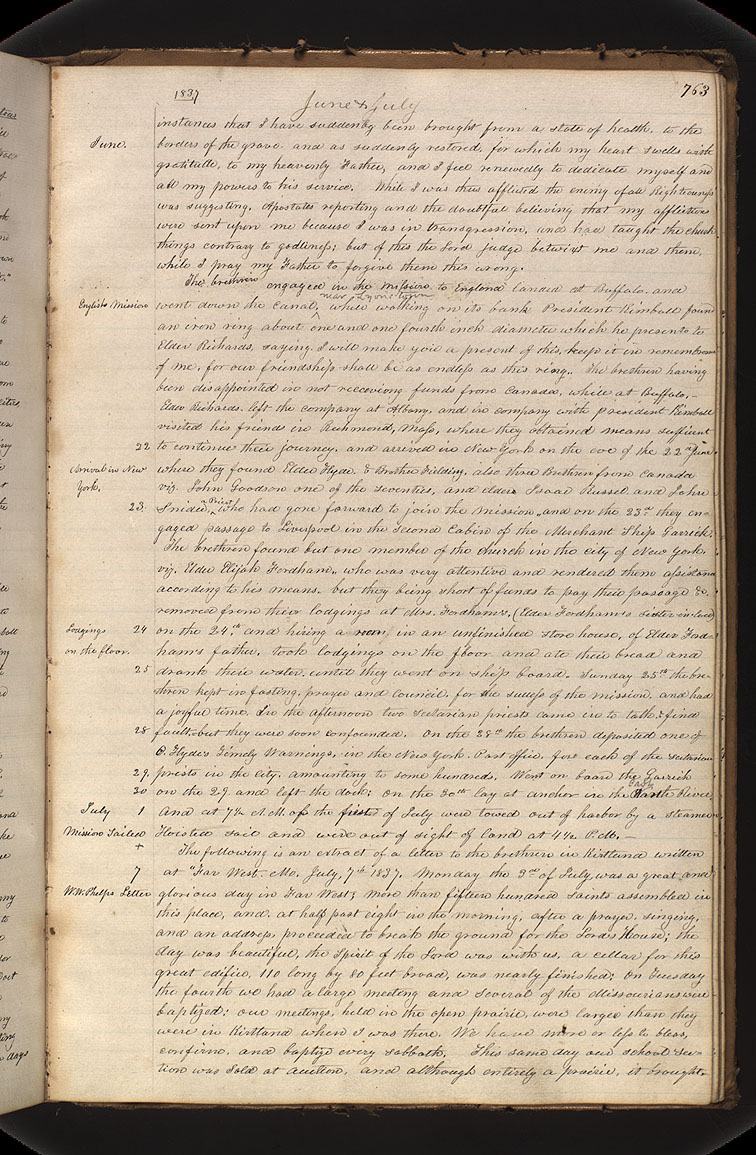 1837
June & July
763
instances that I have suddenly been brought from a state of health, to the
June. borders of the grave and as suddenly restored, for which my heart swells with
gratitude, to my heavenly Father, and I feel renewedly to dedicate myself and
all my powers to his service. While I was thus afflicted the enemy of all Righteousness
was suggesting, Apostates reporting and the doubtful believing that my afflictions
were sent upon me because I was in transgression, and had taught the church
things contrary to godliness; but of this the Lord judge betwixt me and them,
while I pray my Father to forgive them this wrong.
The brethren engaged in the mission to England landed at Buffalo, and
English Mission went down the Canal, near Lyonstown while walking on its bank President Kimball found
an iron ring about one and one fourth inch diameter which he presents to
Elder Richards, saying, I will make you a present of this, keep it in remembrance
of me, for our friendship shall be as endless as this ring.. The brethren having
been disappointed in not receiving funds from Canada, while at Buffalo,—
Elder Richards, left the company at Albany, and in company with president Kimball
visited his friends in Richmond, Mass, where they obtained means sufficient
22 to continue their journey, and arrived in New York on the eve of the 22nd June
Arrival in New York. where they found Elder Hyde & Brother Fielding, also three Brethren from Canada
viz. John Goodson one of the seventies, and elders Isaac Russel and John
23. Snider, a Priest, who had gone forward to join the mission, and on the 23rd they en-
gaged passage to Liverpool in the second Cabin of the Merchant Ship Garrick.
The brethren found but one member of the church in the city of New York.
viz. Elder Elijah Fordham, who was very attentive and rendered them assistance
according to his means. but they being short of funds to pay their passage &c.
removed from their lodgings at Mrs. Fordham's, (Elder Fordhams sister-in-law)
Lodgings on the floor. 24 on the 24th. and hiring a room, in an unfinished store house, of Elder Ford-
ham's father, took lodgings on the floor and ate their bread and
25 drank their water, until they went on ship board. Sunday 25th the bre-
thren kept in fasting, prayer and council, for the success of the mission, and had
a joyful time. In the afternoon two sectarian priests came in to talk & find
28 fault, but they were soon confounded. On the 28th the brethren deposited one of
O. Hydes Timely Warnings, in the New York. Post office, for each of the sectarian
29. priests in the city, amounting to some hundreds. Went on board the Garrick
30 on the 29 and left the dock; on the 30th lay at anchor in the East River
July 1 And at 7½ A.M. of the first of July were towed out of harbor by a steamer,
Mission Sailed Hoisted sail and were out of sight of land at 4½ P.M. —
+ The following is an extract of a letter to the brethren in Kirtland written
7 at "Far West. Mo. July, 7th 1837. Monday the 3rd of July, was a great and
W.W. Phelps Letter glorious day in Far West; more than fifteen hundred saints assembled in
this place, and, at half past eight in the morning, after a prayer, singing,
and an address, proceeded to break the ground for the Lord's House; the
day was beautiful, the Spirit of the Lord was with us, a cellar for this
great edifice, 110 long by 80 feet broad, was nearly finished; On Tuesday
the fourth we had a large meeting and several of the Missourians were
baptized; our meetings, held in the open prairie, were larger than they
were in Kirtland when I was there. We have more or less to bless,
confirm, and baptize every sabbath, This same day our school sec-
tion was Sold at auction, and although entirely a prairie, it brought,